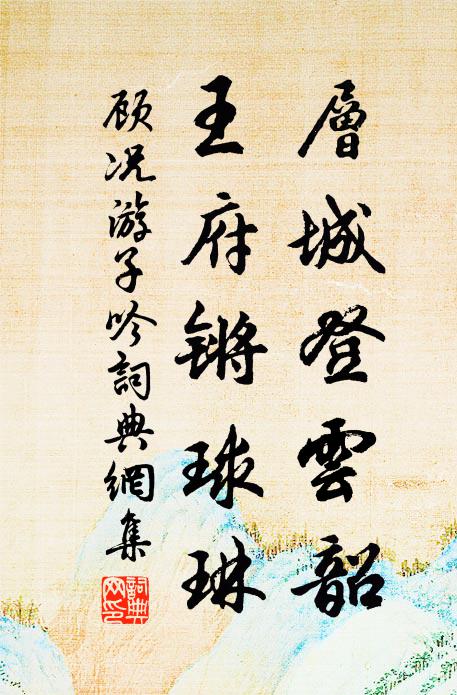 層城登雲韶
王府锵球琳
顾况游子吟詞典網集
詞典網印